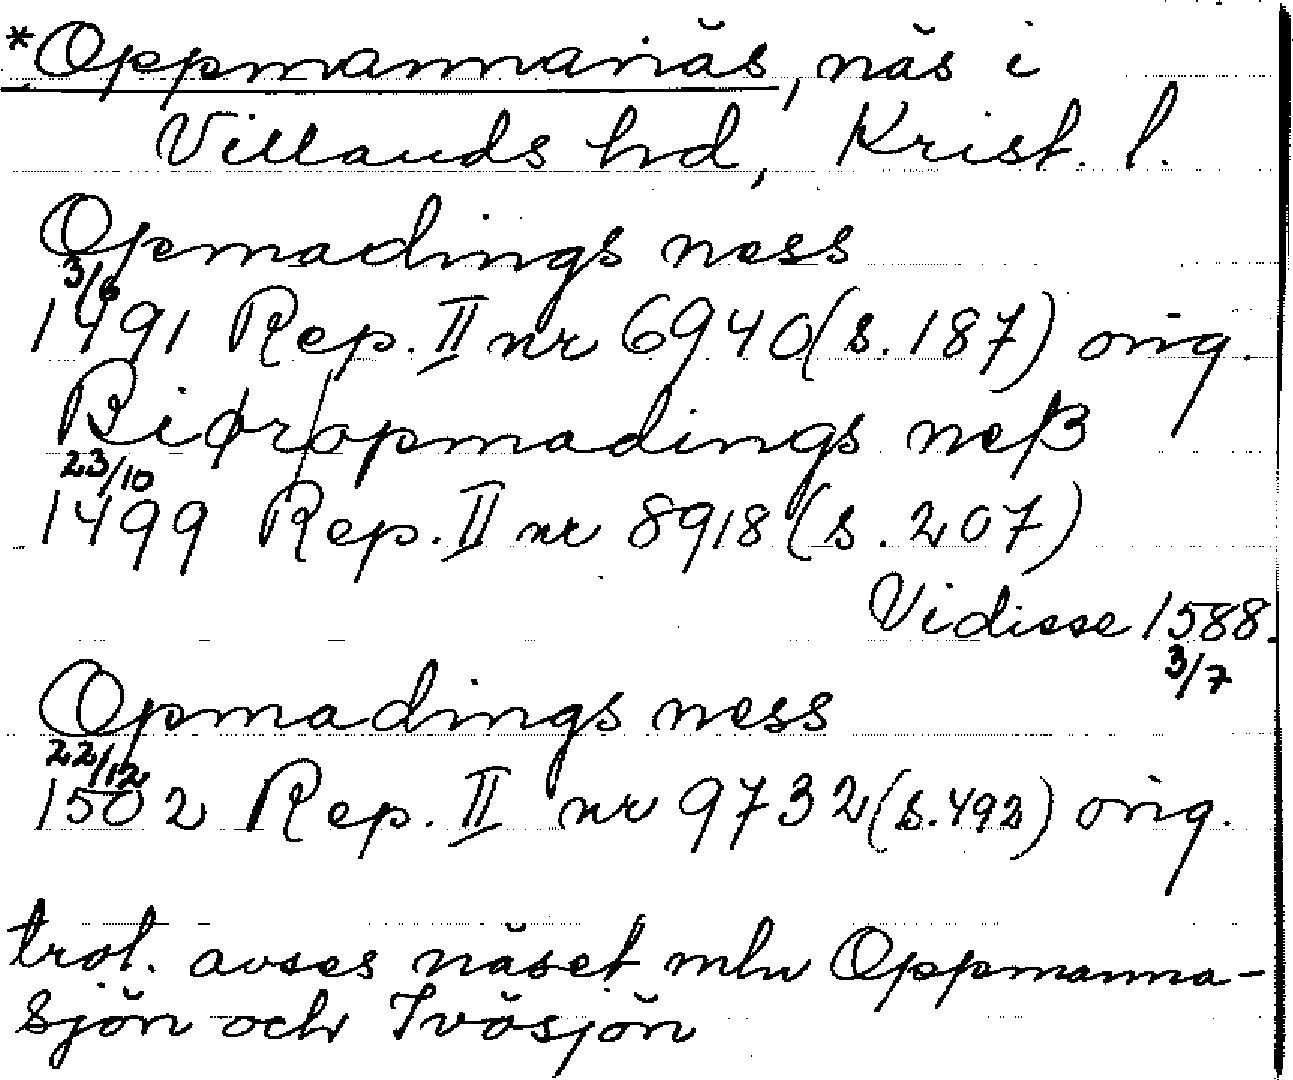 *Oppmannanäs, näs i
Villands hd, Krist. l.
Opmadings ness
3/6
1491 Rep. II nr 6940 (s. 187) orig.
opmadings neß
23/10
1499 Rep. II nr 8918 (s. 207)
Vidisse 1588.
3/7
Opmadings ness
22/12
1502 Rep. II nr 9732 (s. 492) orig.
trol. avses näset mln Oppmanna-
sjön och Ivösjön